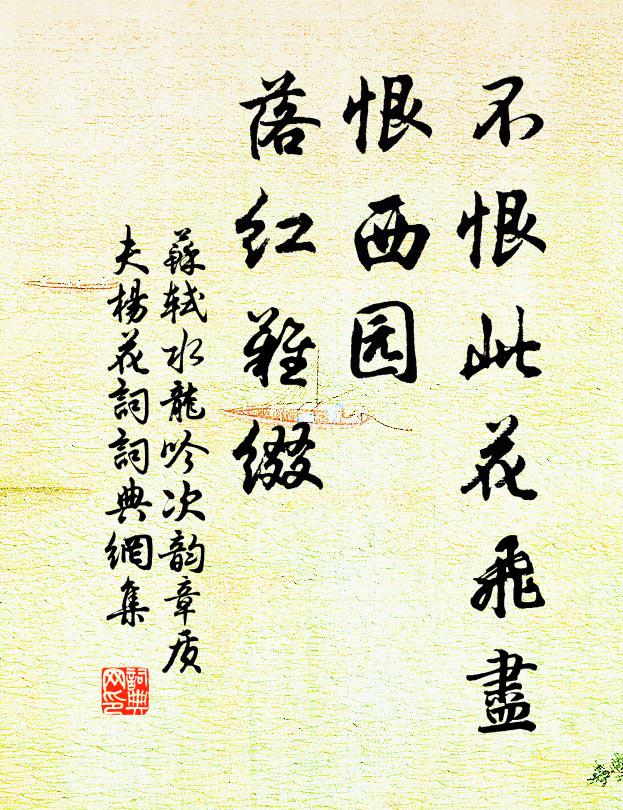 不恨此花飛盡
恨西园
落红難缀
蘇軾水龍吟次韵章质
夫楊花詞詞典網集
詞典网印